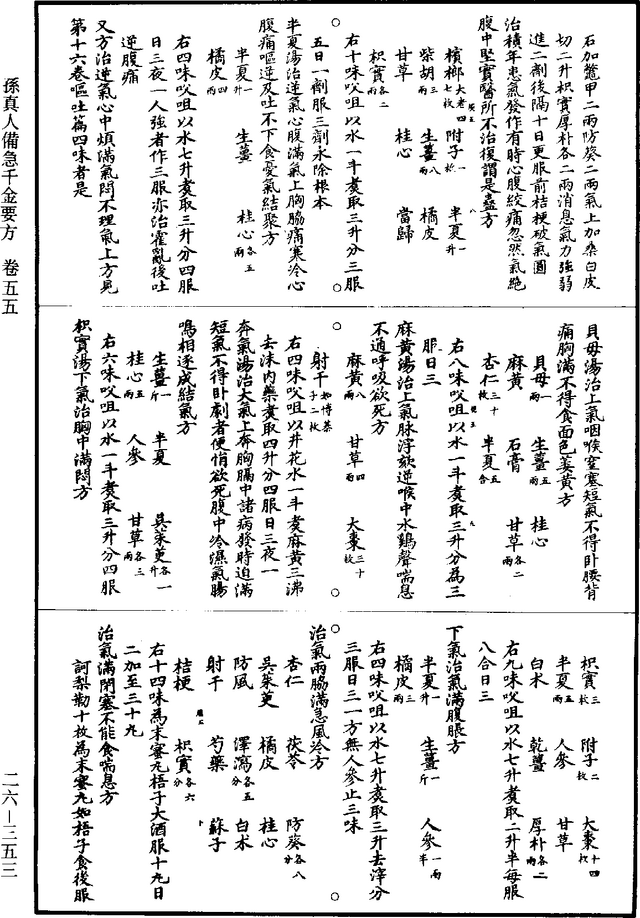 石加鼈甲二兩防葵二兩氣上加桑白皮
切二升枳實厚朴各二兩消息氣力強弱
進二劑後隔十日更服前桔梗破氣圓
治積年患氣發作有時心腹絞痛忽然氣絕
腹中堅實醫所不治復謂是蠱方
檳榔大者四七枚 附子一枚 半夏一升
柴胡三兩 生薑八兩 橘皮
甘草 桂心 當歸
枳實各二兩
右十味㕮咀以水一斗煮取三升分三服
五日一劑服三劑永除根本
半夏湯治逆氣心腹滿氣上胸脇痛寒冷心
腹痛嘔逆及吐不下食憂氣結聚方
半夏一升 生薑 桂心各五兩
橘皮四兩
右四味㕮咀以水七升煮取三升分四服
日三夜一人強者作三服亦治霍亂後吐
逆腹痛
又方治逆氣心中煩滿氣悶不理氣上方見
第十六卷嘔吐篇四味者是
貝母湯治上氣咽喉窒塞短氣不得卧腰背
痛胸滿不得食面色萎黃方
貝母一兩 生薑五兩 桂心
麻黃 石膏 甘草各二兩
杏仁三十枚 半夏三合
右八味㕮咀以水一斗煮取三升分為三
服日三
麻黃湯治上氣脉浮欬逆喉中水鷄聲喘息
不通呼吸欲死方
麻黃八兩 甘草四兩 大棗三十
射干如博棊子二枚
右四味㕮咀以井花水一斗煮麻黃三沸
去沫内藥煮取四升分四服日三夜一
奔氣湯治大氣上奔胸膈中諸病發時迫滿
短氣不得卧劇者便悁欲死腹中冷濕氣腸
鳴相逐成結氣方
生薑一斤 半夏 吳茱萸各一升
桂心五兩 人參 甘草各三兩
右六味㕮咀以水一斗煮取三升分四服
枳實湯下氣治胸中滿悶方
枳實三枚 附子二枚 大棗十四枚
半夏五兩 人參 甘草
白朮 乾薑 厚朴各二兩
右九味㕮咀以水七升煮取二升半每服
八合日三
下氣治氣滿腹脹方
半夏一升 生薑一斤 人參一兩半
橘皮三兩
右四味㕮咀以水七升煮取三升去滓分
三服日三一方無人參止三味
治氣兩脇滿急風冷方
杏仁 茯苓 防葵各八分
吳茱萸 橘皮 桂心
防風 澤瀉各五分 白朮
射干 芍藥 蘇子
桔梗 枳實各六分
右十四味為末蜜丸梧子大酒服十九日
二加至三十九
治氣滿閉塞不能食喘息方
訶梨勒十枚為末蜜丸如梧子食後服
孫真人備急千金要方 卷五五
二六—三五三